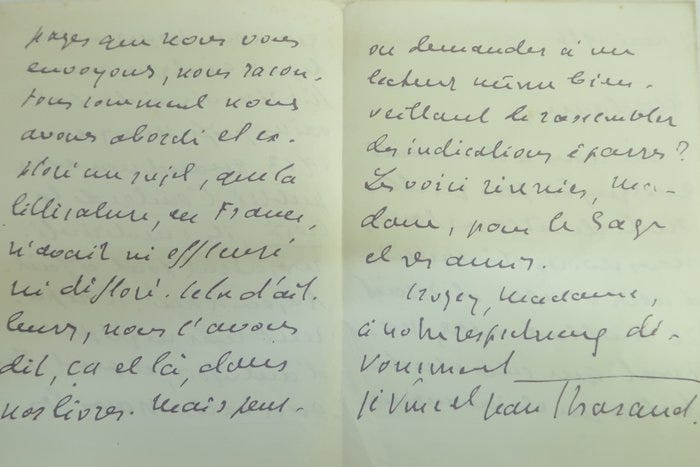 pages que nous vous
envoyons, nous racon-
tons comment nous
avons abordé et ex-
ploré un sujet, que la
littérature, en France,
n'avait ni effleuré
ni défloré. Cela d'ail-
leurs, nous l'avons
dit, ça et là, dans
nos livres. Mais peut-
on demander à un
lecteur même bien-
veillant de rassembler
des indications éparses ?
Les voici réunies, Ma-
dame, pour le Sage
et ses amis.
Croyez, Madame,
à notre respectueux dé-
vouement
Jérôme et Jean Tharaud.